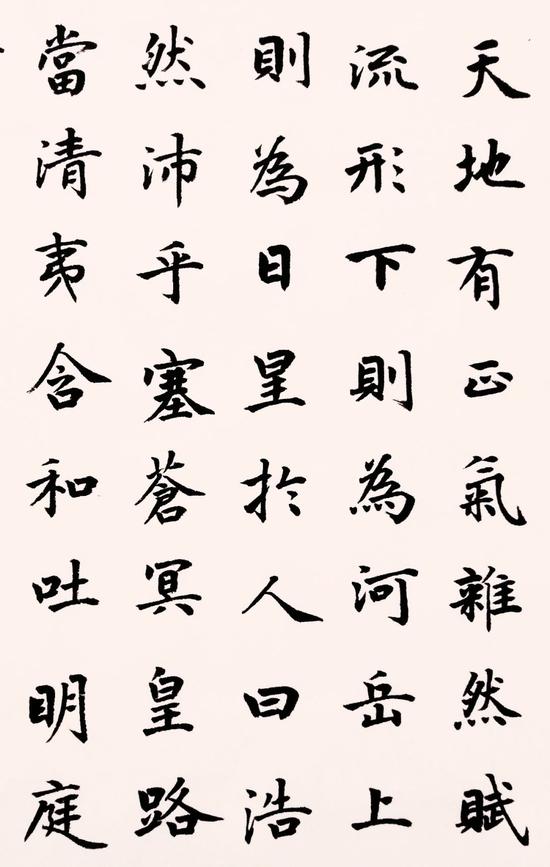 天地有正氣雜然賦
流形下則為河岳上
則為日星於人曰浩
然沛乎塞蒼冥皇路
當清夷含和吐明庭